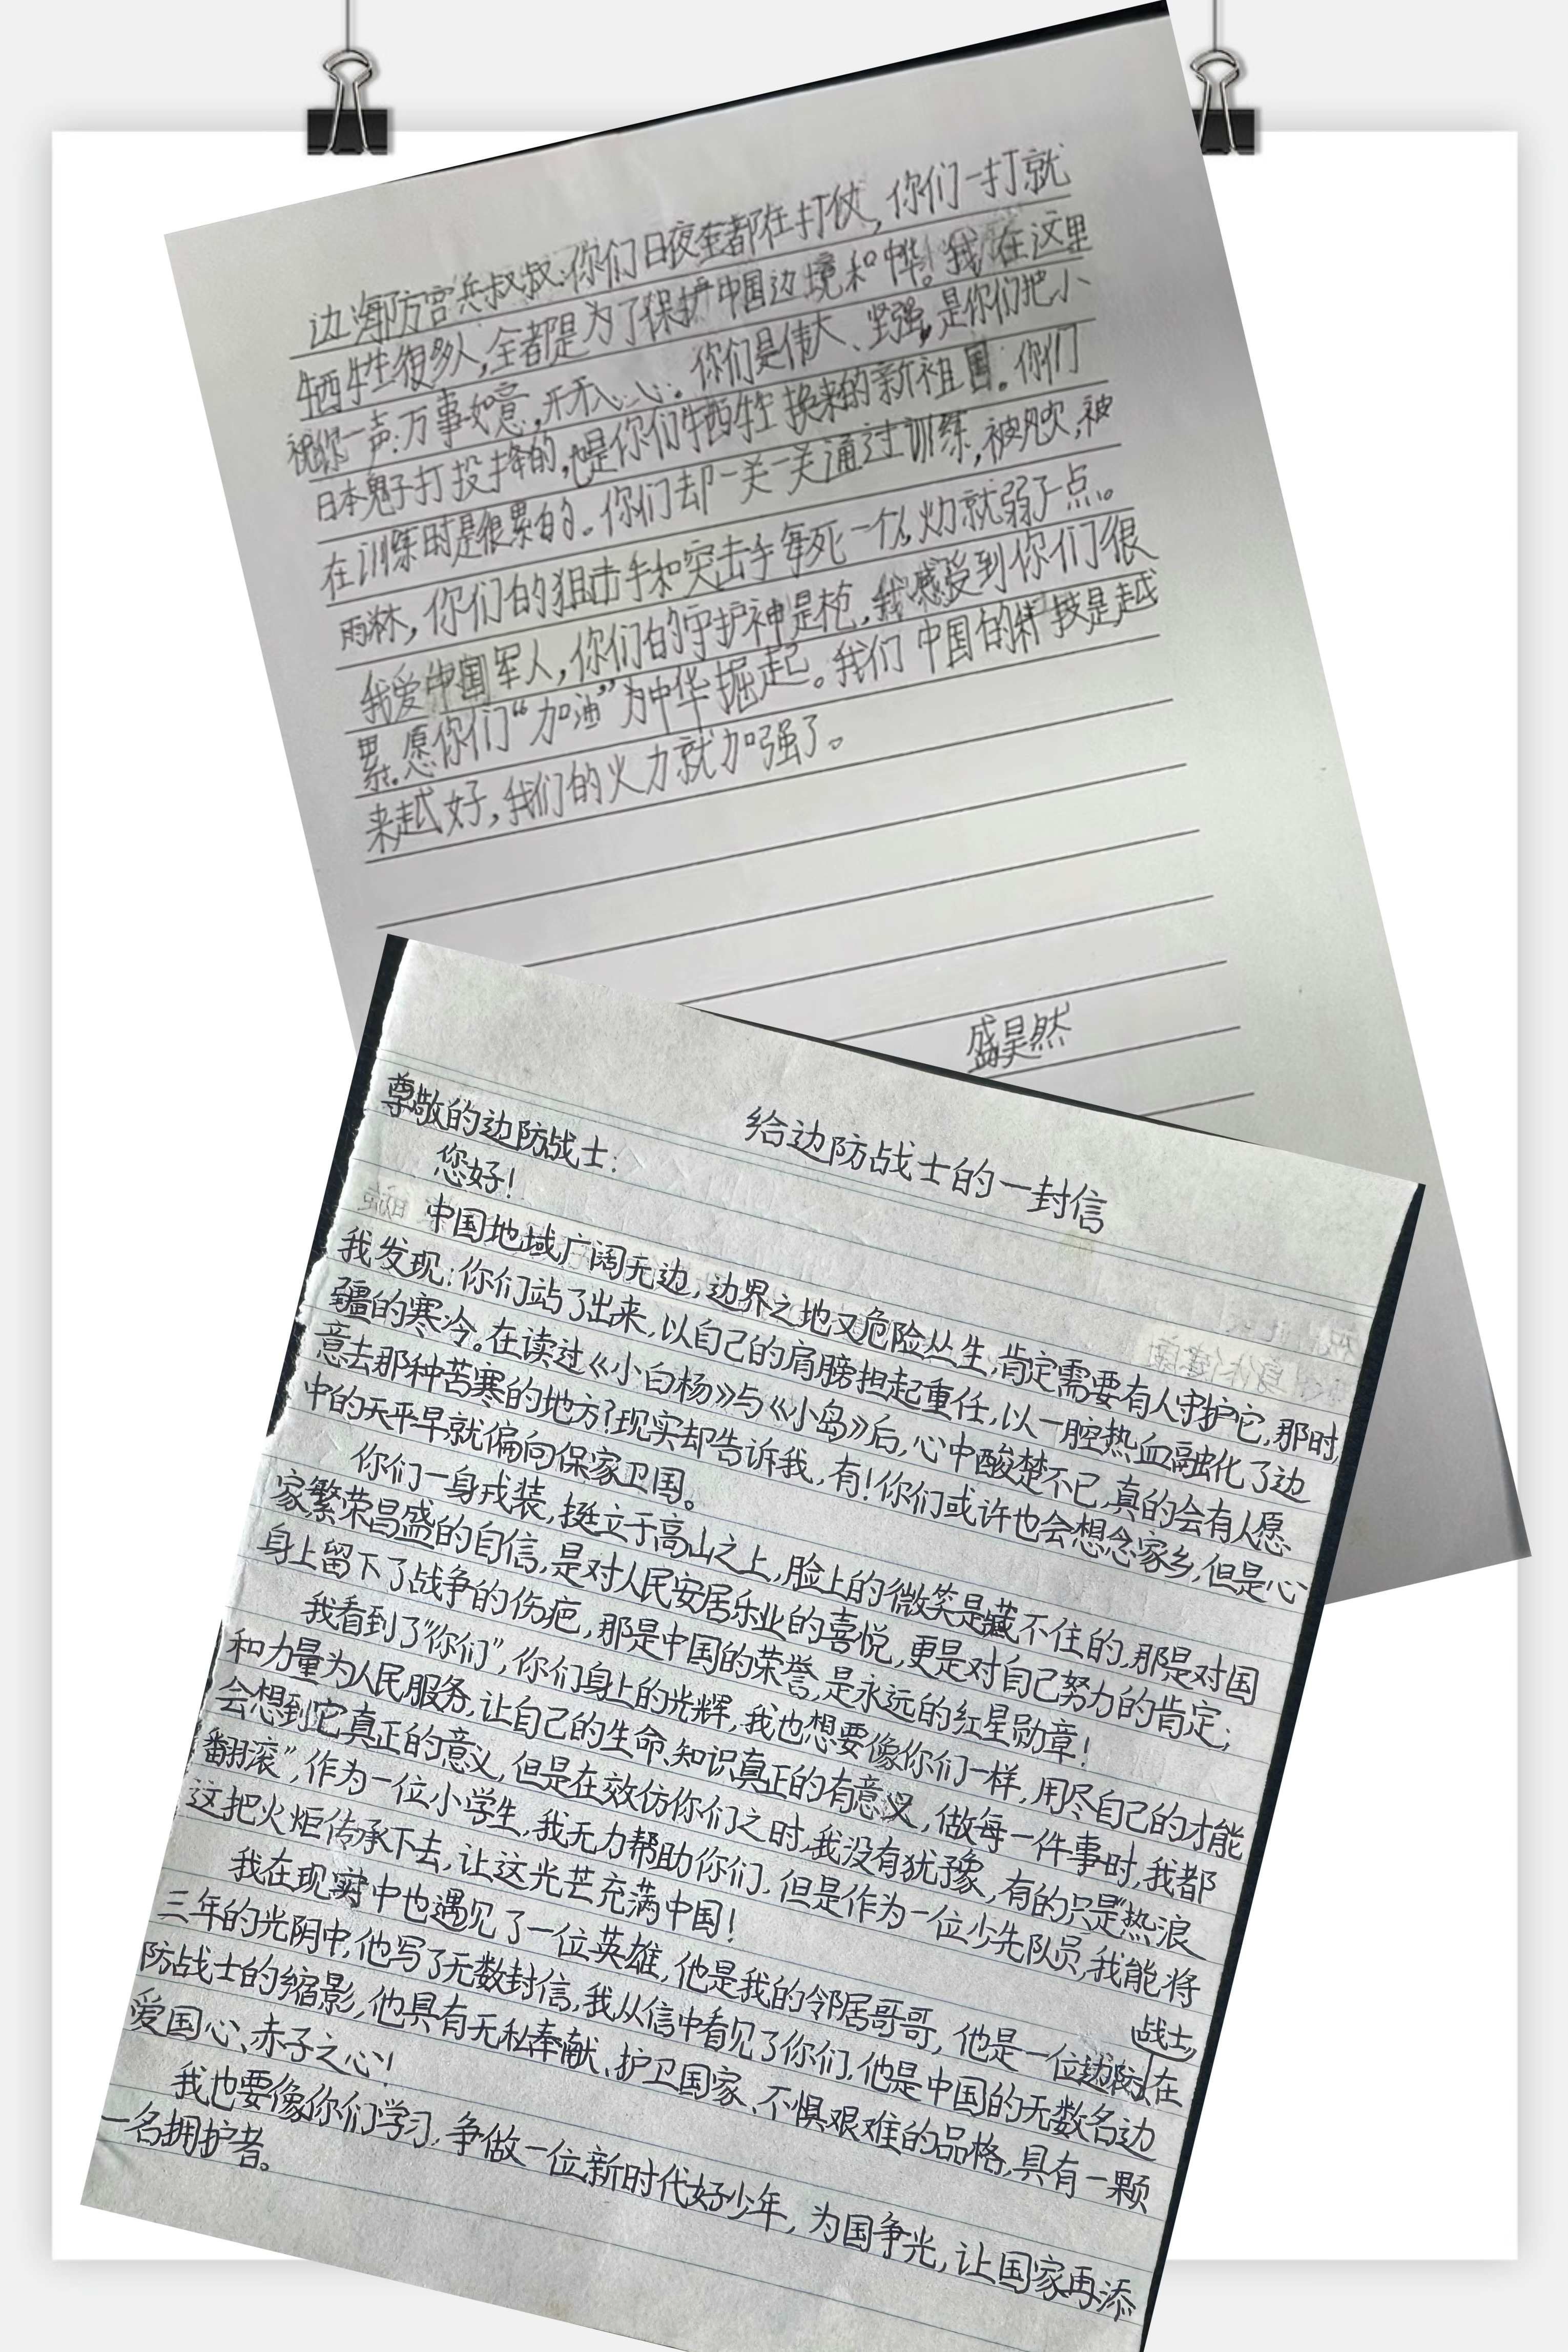 边海防官兵叔叔:你们日夜全都在打仗,你们一打就
牺牲很多人,全都是为了保护中国边境和中华。我在这里
祝你一声:万事如意,开开心心。你们是伟大、坚强,是你们把小
日本鬼子打投降的,也是你们牺牲换来的新祖国。你们
在训练时是很累的。你们却一关一关通过训练,被风吹,被
雨淋,你们的狙击手和突击手每死一个人,火力就弱了一点。
我爱中国军人,你们的守护神是枪,我感受到你们很
累。愿你们“加油”为中华掘起。我们中国的科技是越
来越好,我们的火力就加强了。
盛昊然
给边防战士的一封信
尊敬的边防战士:
您好!
中国地域广阔无边,边界之地又危险丛生,肯定需要有人守护它,那时,
我发现:你们站了出来,以自己的肩膀担起重任,以一腔热血融化了边
疆的寒冷。在读过《小白杨》与《小岛》后,心中酸楚不已,真的会有人愿
意去那种苦寒的地方?现实却告诉我,有!你们或许也会想念家乡,但是心
中的天平早就偏向保家卫国。
你们一身戎装,挺立于高山之上,脸上的微笑是藏不住的,那是对国
家繁荣昌盛的自信,是对人民安居乐业的喜悦,更是对自己努力的肯定;
身上留下了战争的伤疤,那是中国的荣誉,是永远的红星勋章!
我看到了“你们”,你们身上的光辉,我也想要像你们一样,用尽自己的才能
和力量为人民服务,让自己的生命、知识真正的有意义,做每一件事时,我都
会想到它真正的意义,但是在效仿你们之时,我没有犹予豫,有的只是“热浪
翻滚”,作为一位小学生,我无力帮助你们,但是作为一位少先队员,我能将
这把火炬传承下去,让这光芒充满中国!
我在现实中也遇见了一位英雄,他是我的邻居哥哥,他是一位边防战士,在
三年的光阴中,他写了无数封信,我从信中看见了你们,他是中国的无数名边
防战士的缩影,他具有无私奉献、护卫国家、不惧艰难的品格,具有一颗
爱国心、赤子之心!
我也要像你们学习,争做一位新时代好少年,为国争光,让国家再添
一名拥护者。